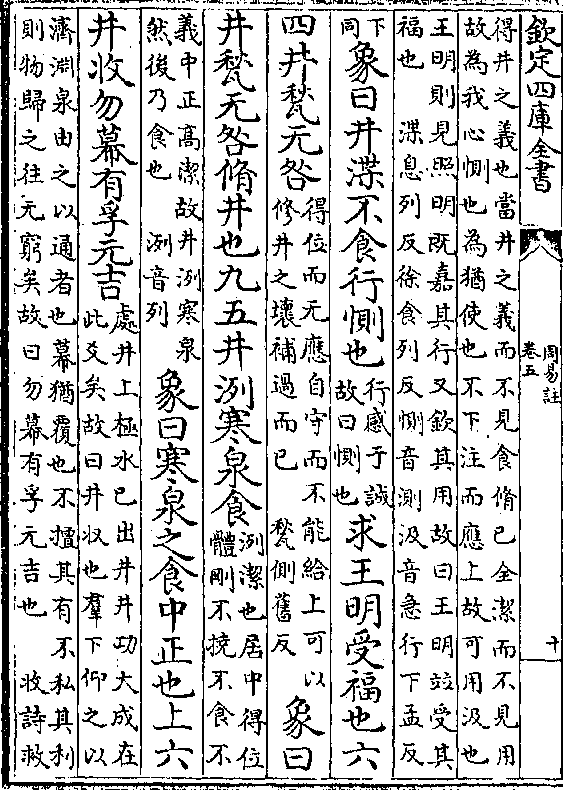 欽定四庫全書
周易註
卷五
十
得井之義也當井之義而不見食脩已全潔而不見用
故為我心惻也為猶使也不下注而應上故可用汲也
王明則見照明既嘉其行又欽其用故曰王明竝受其
福也 渫息列反徐食列反惻音測汲音急行下孟反
下
同
象曰井渫不食行惻也
行感于誠
故曰惻也
求王明受福也六
四井甃无咎
得位而无應自守而不能給上可以
修井之壞補過而已 甃側舊反
象曰
井甃无咎脩井也九五井洌寒泉食
洌潔也居中得位
體剛不撓不食不
義中正高潔故井洌寒泉
然後乃食也 洌音列
象曰寒泉之食中正也上六
井收勿幕有孚元吉
處井上極水已出井井功大成在
此爻矣故曰井収也羣下仰之以
濟淵泉由之以通者也幕猶覆也不擅其有不私其利
則物歸之往无窮矣故曰勿幕有孚元吉也 收詩救